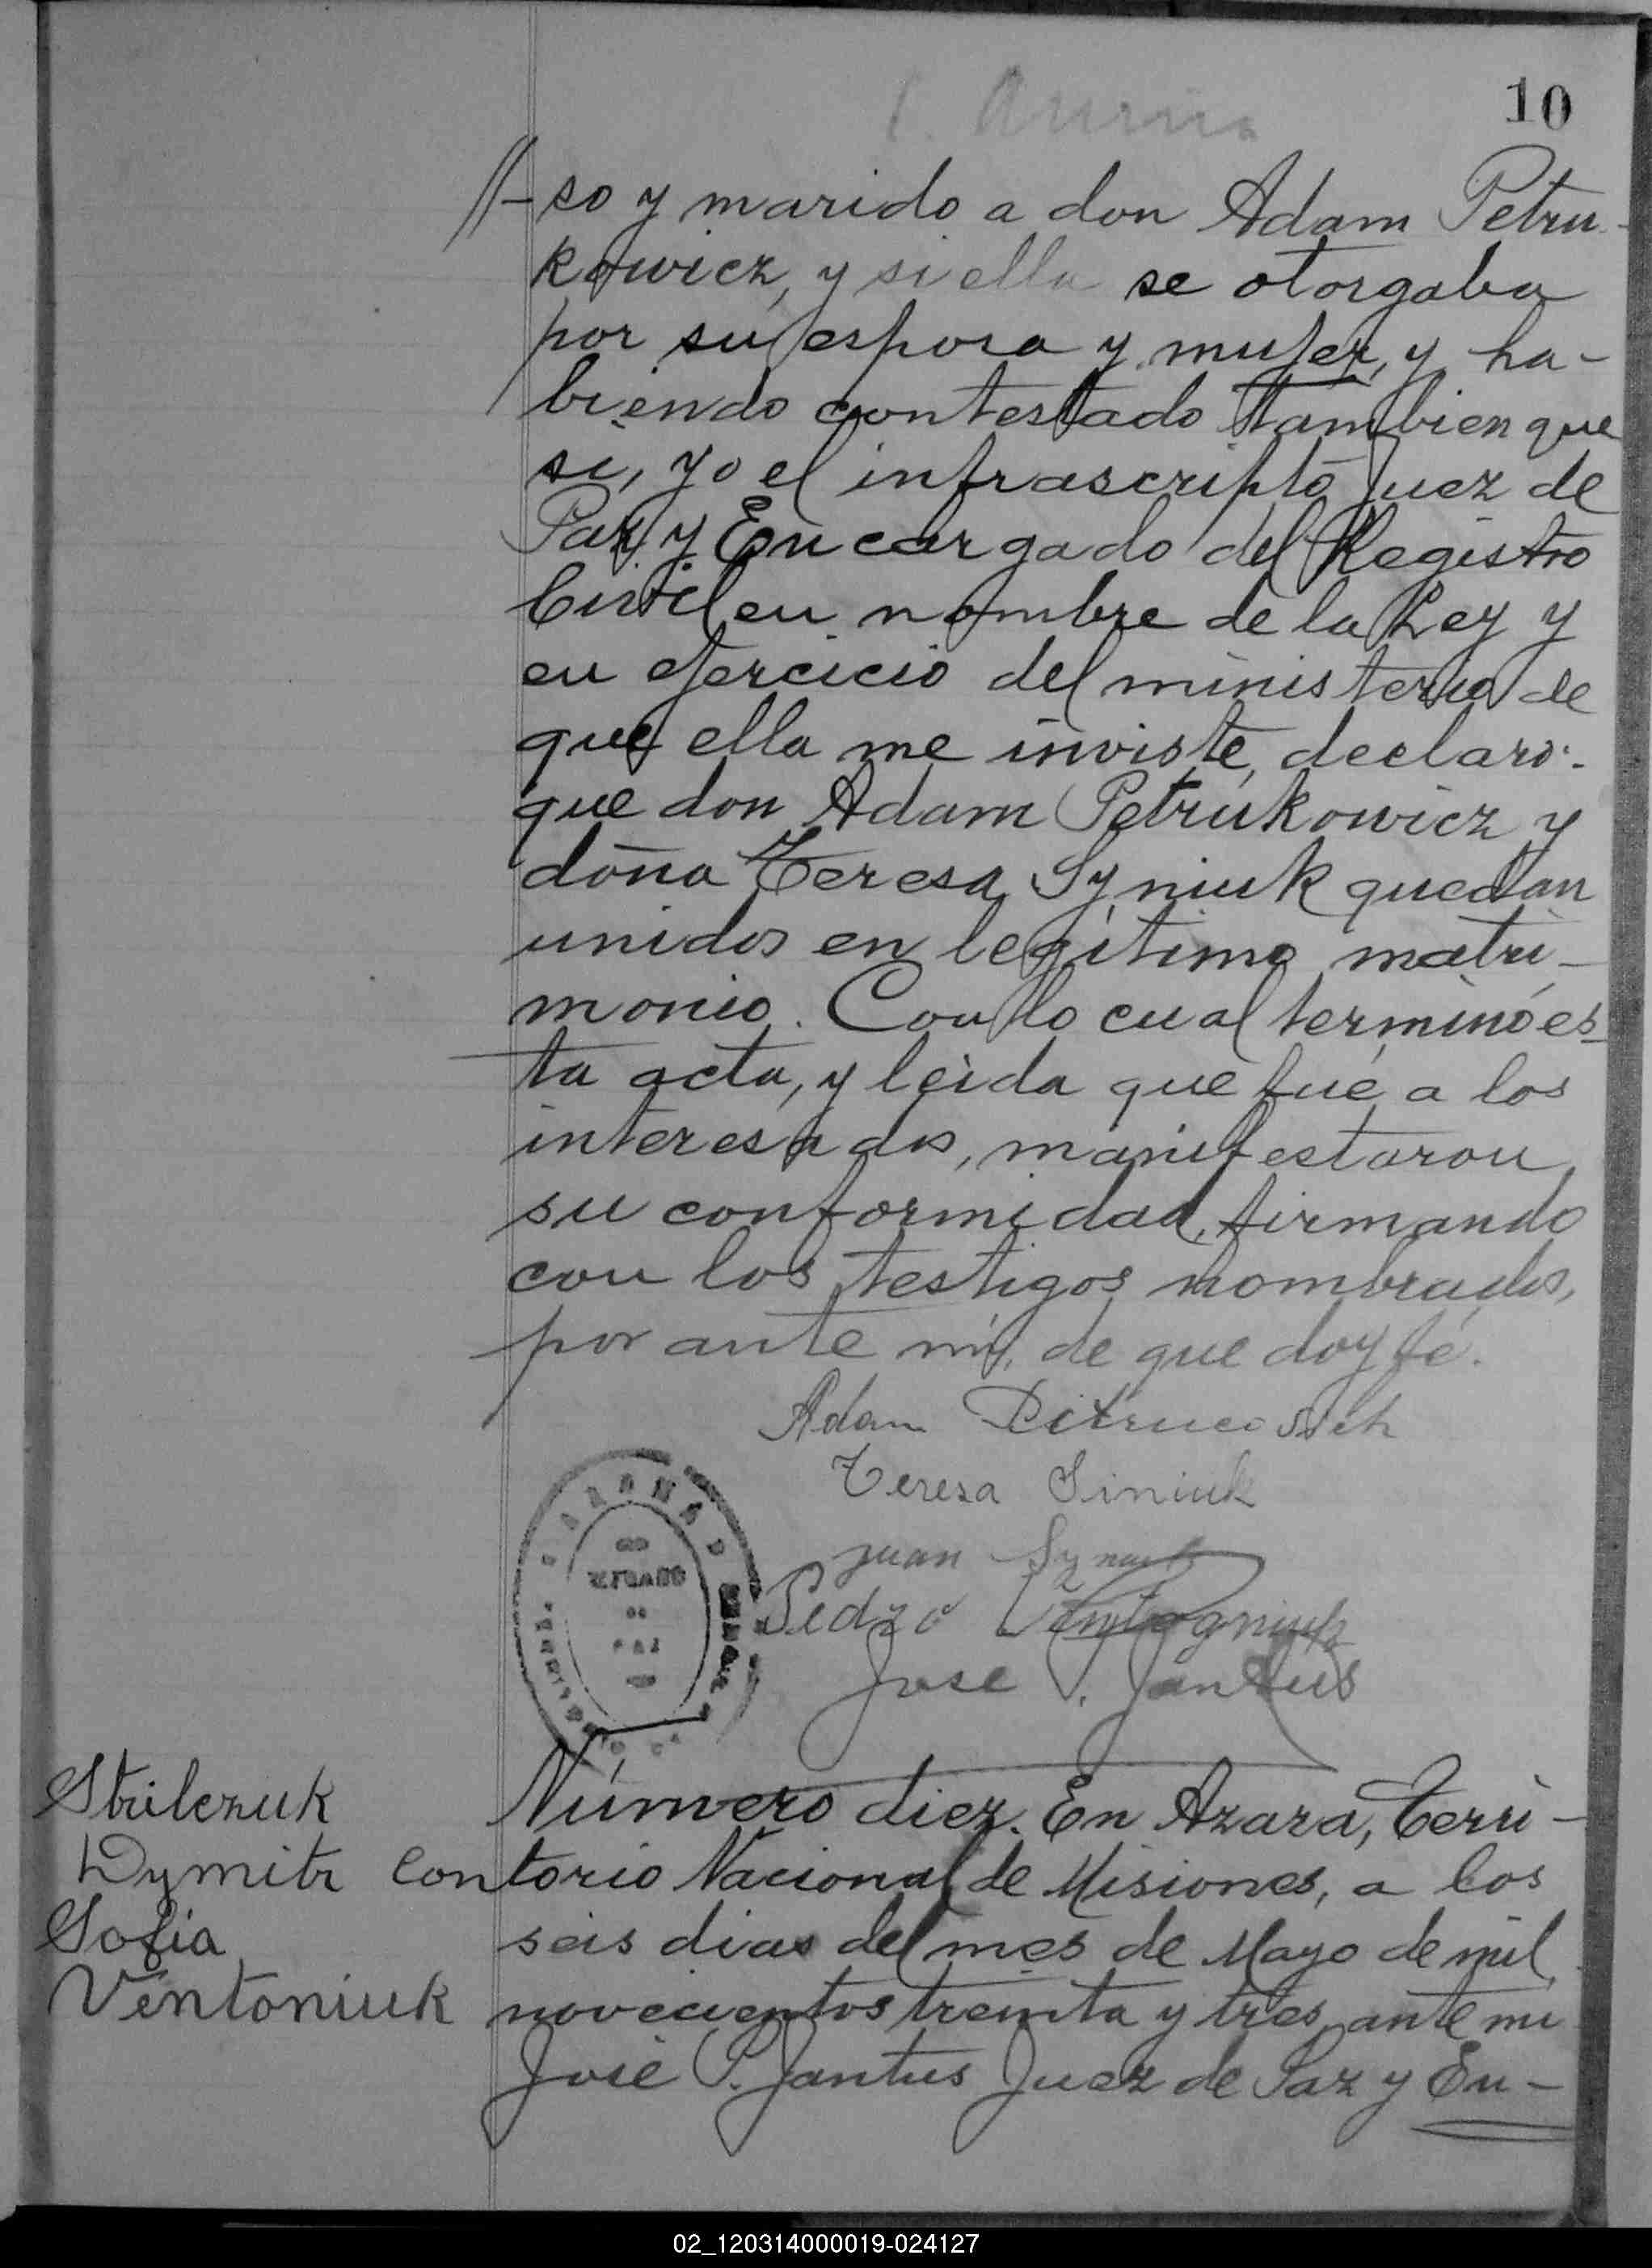 10
//-so y marido a don Adam Petru-
kowicz, y si ella se otorgaba
por su esposa y mujer, y ha-
biendo contestado tambien que
si, yo el infrascripto Juez de
Paz y Encargado del Registro
Civil en nombre de la Ley y
en ejercicio del ministerio de
que ella me inviste, declaro:
que don Adam Petrukowicz y
doña Teresa Syniuk quedan
unidos en legítimo matri-
monio. Con lo cual terminó es-
ta acta, y leida que fué a los
interesados, manifestaron
su conformidad, firmando
con los testigos nombrados,
por ante mí, de que doy fé.
Adam
Teresa Siniuk
Juan
Pedro
José P. Jantus
JUZGADO
DE
PAZ
Strilczuk
Dymitr con
Sofia
Ventoniuk
Número diez. En Azara, Terri-
torio Nacional de Misiones, a los
seis dias del mes de Mayo de mil
novecientos treinta y tres, ante mi
José P. Jantus Juez de Paz y En-
02_120314000019-024127